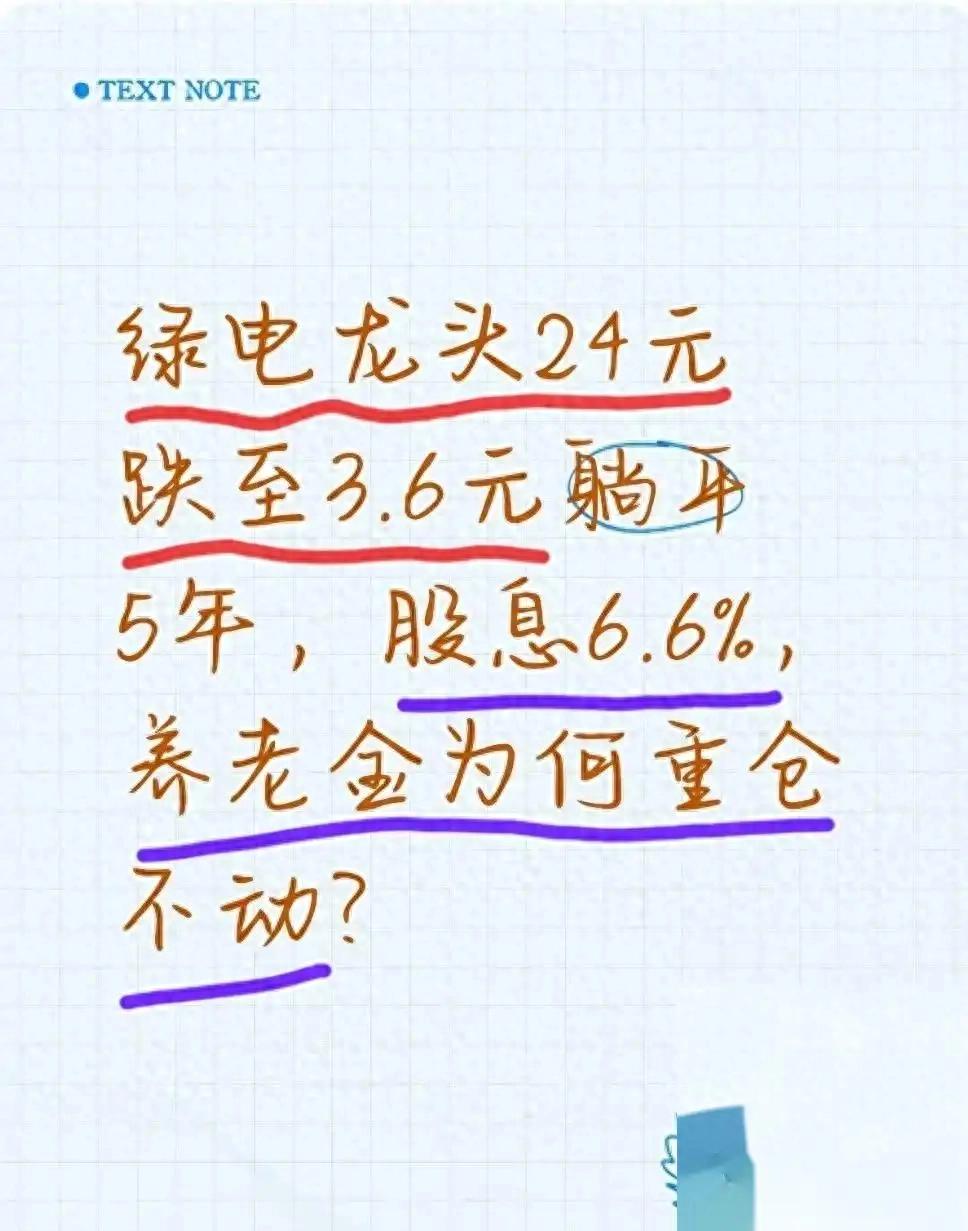 TEXT NOTE
绿电龙头24元
跌至3.6元躺平
5年，股息6.6%，
养老金为何重仓
不动？